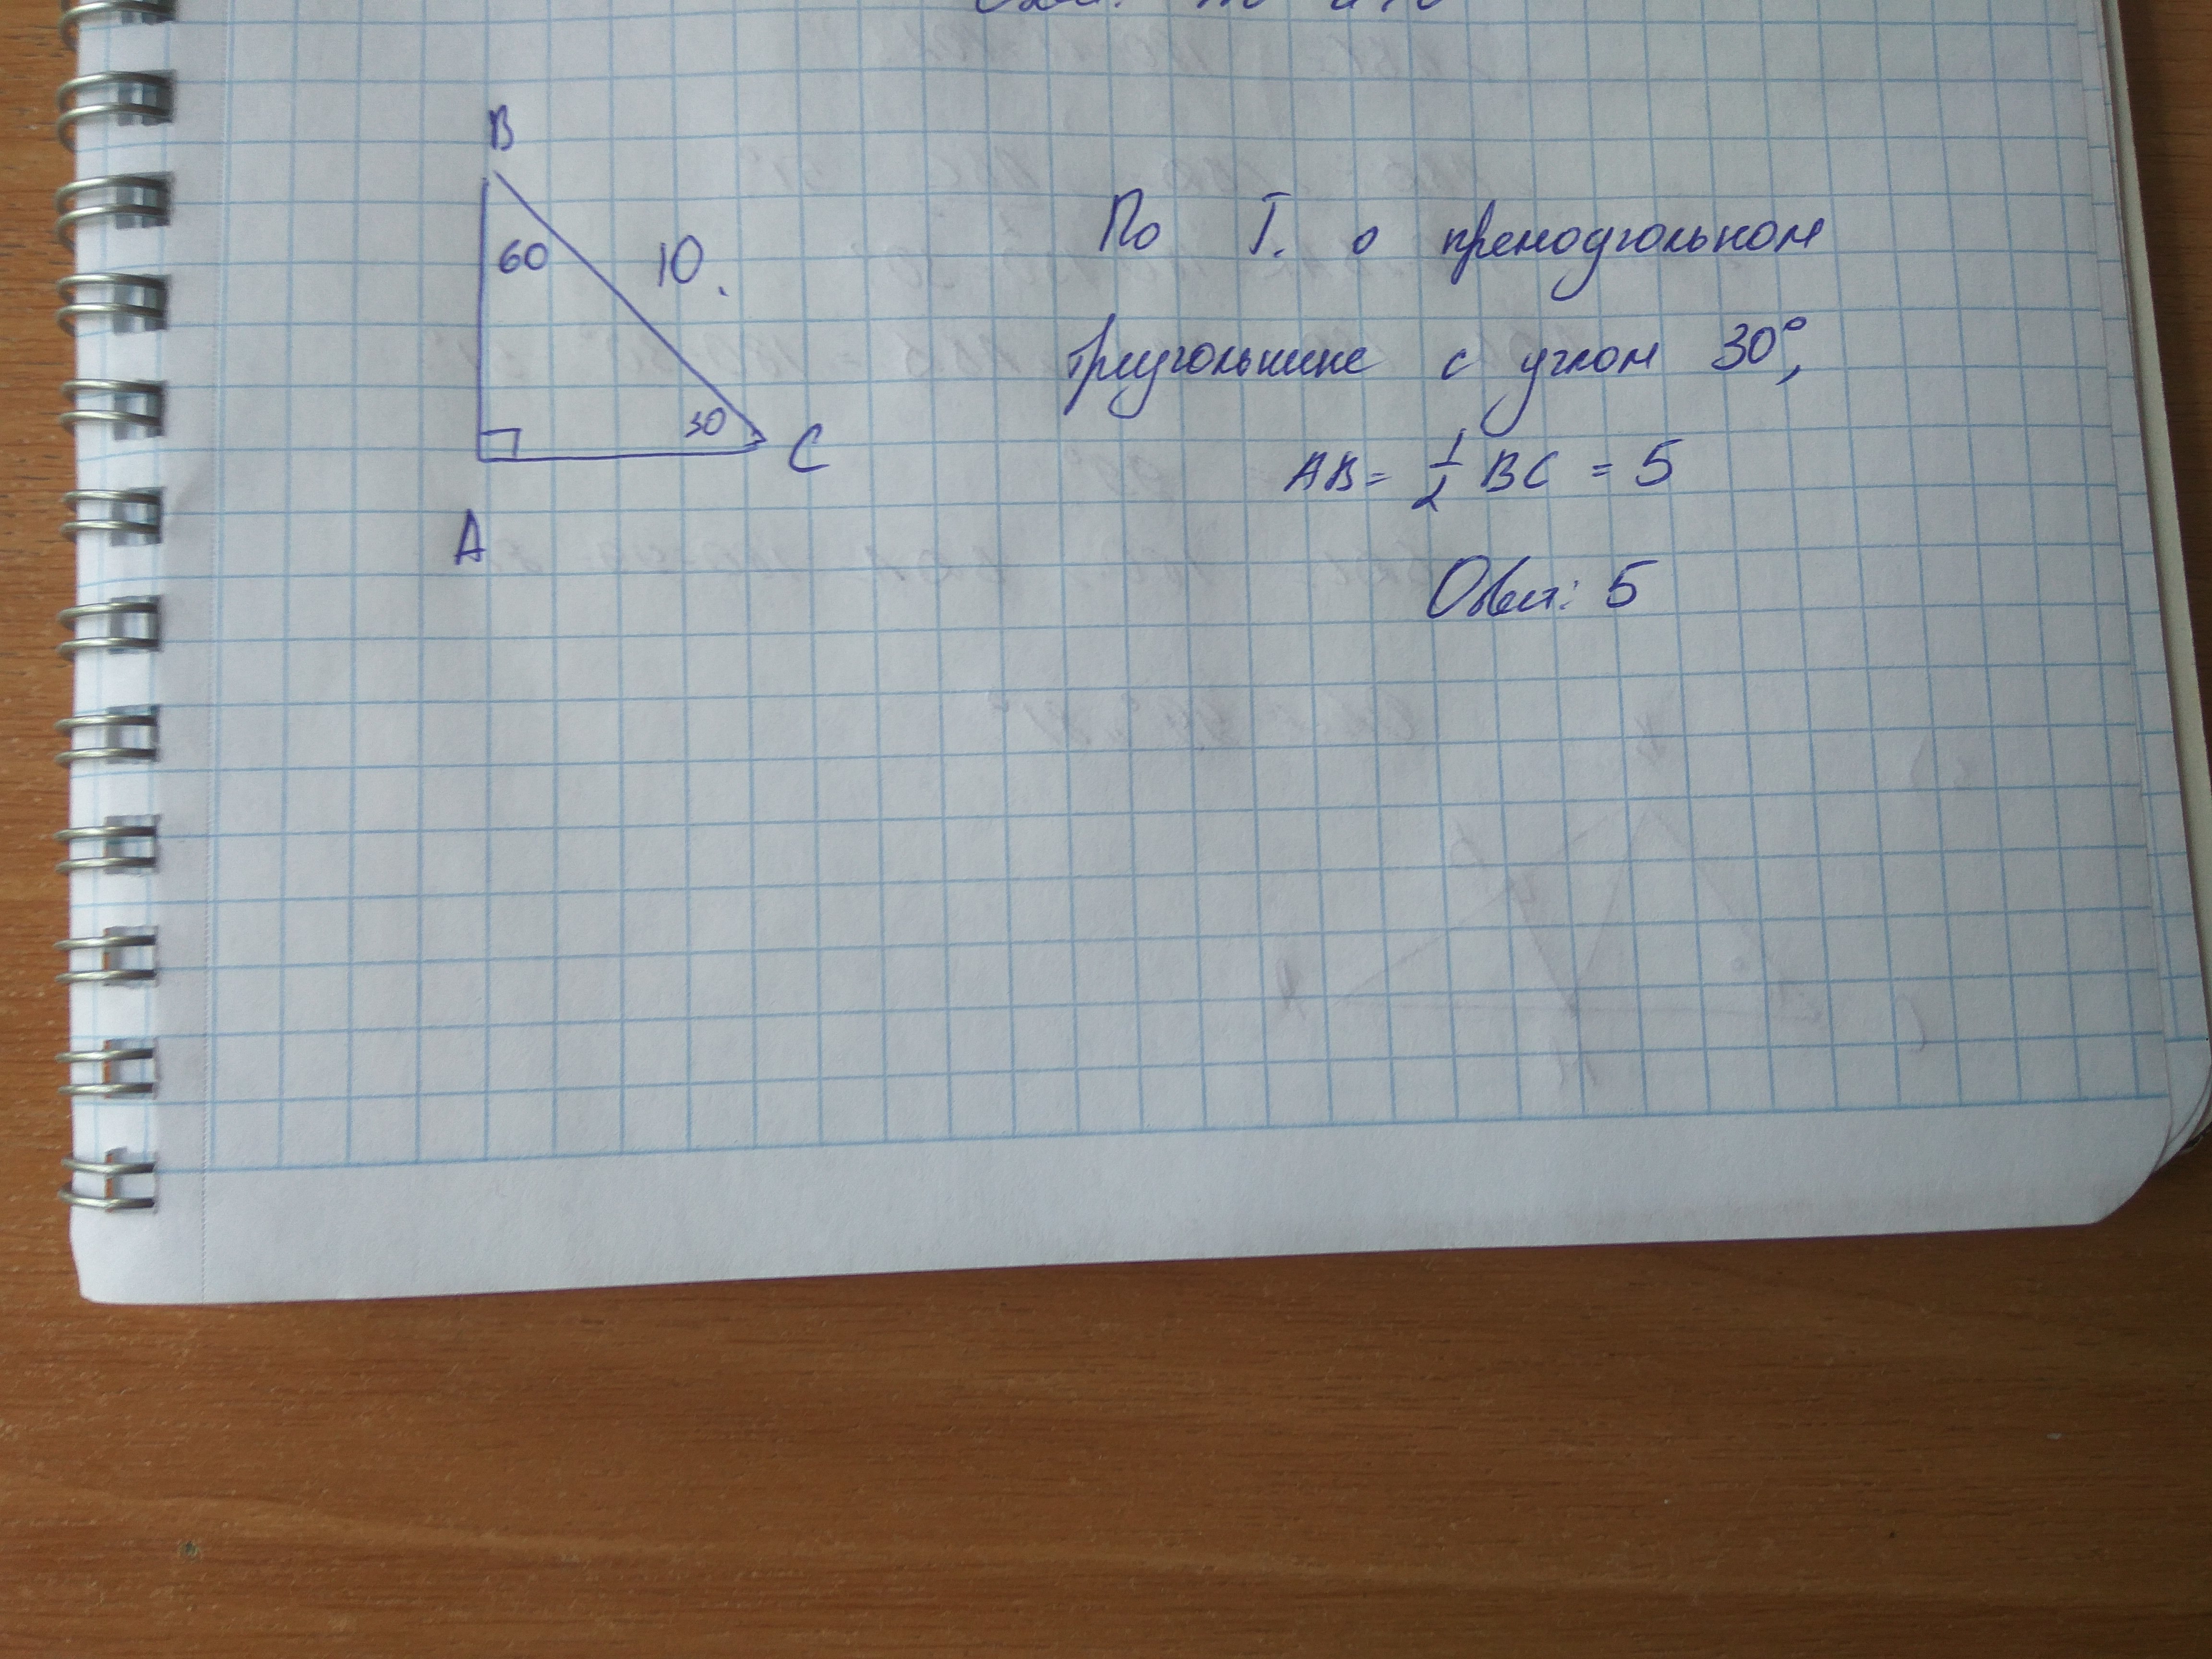 B
60
10.
30
C
A
По Т. о премоугольном
треугольнике с углом 30°,
AB = 1/2 BC = 5
Ответ: 5